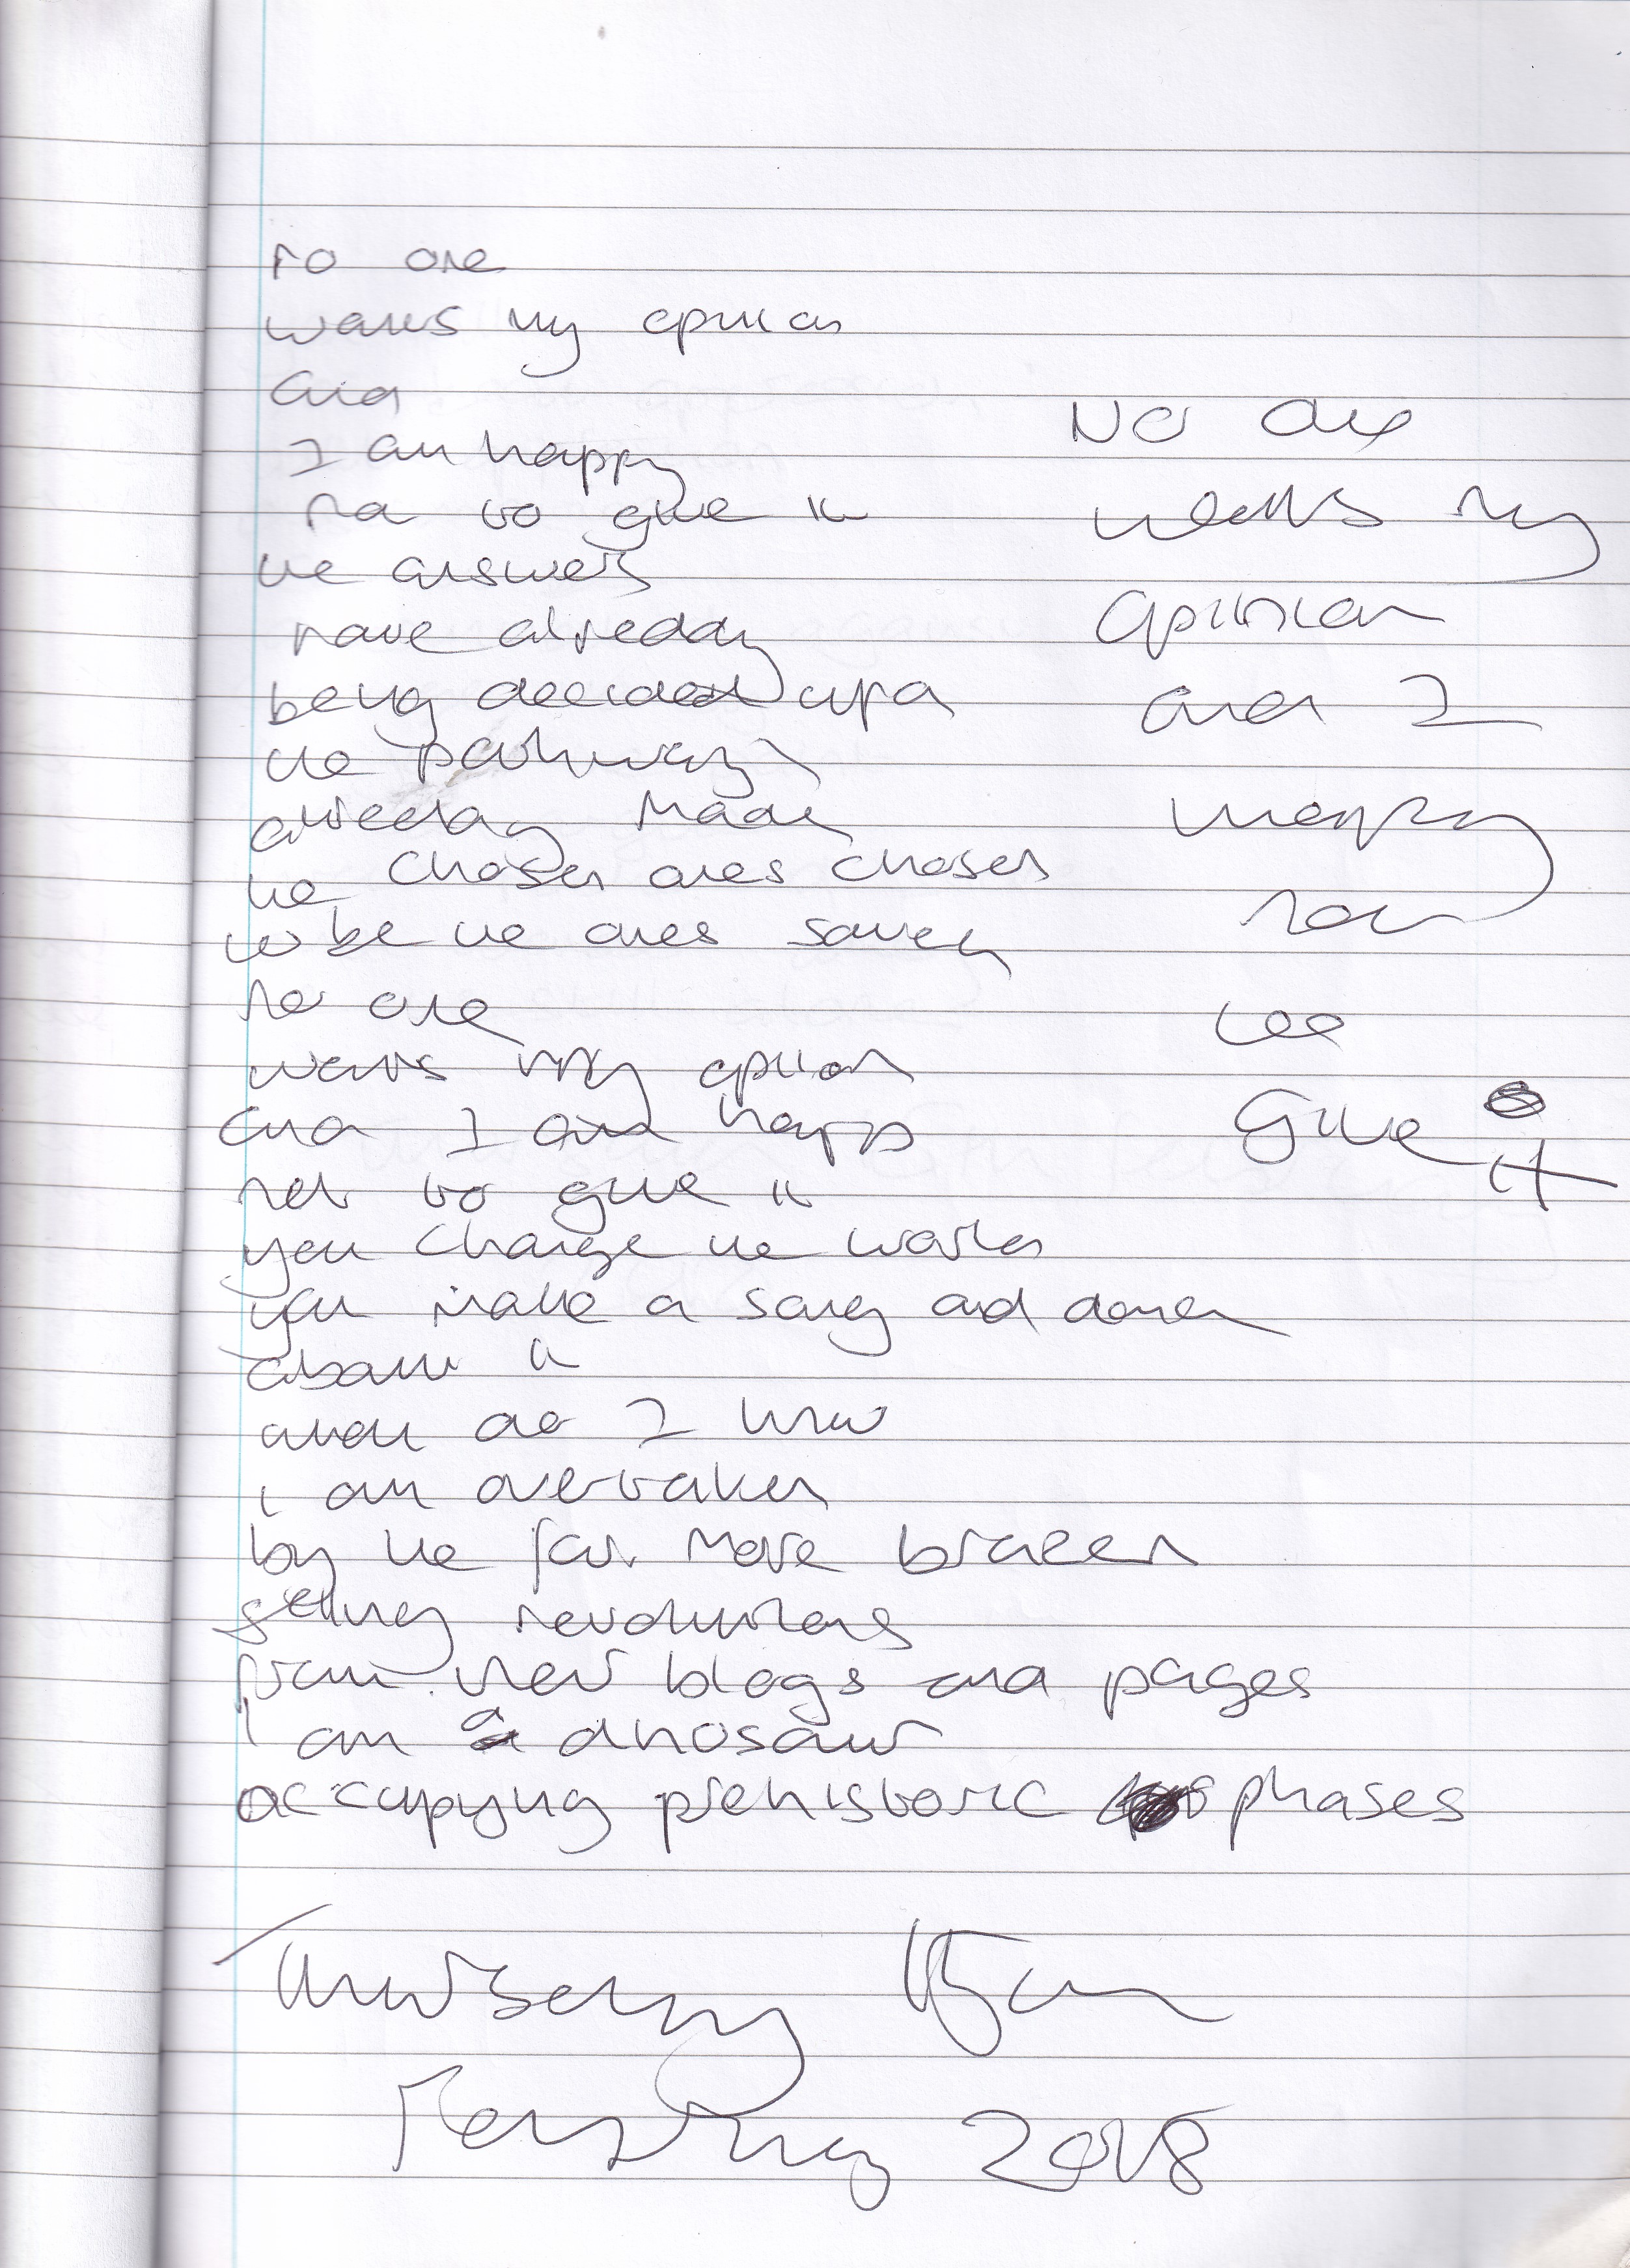 no one
wants my opinion
and
I am happy
not to give it
the answers
have already
being decided upon
the pathways
already made
the chosen ones chosen
to be the ones saved
no one
wants my opinion
and I am happy
not to give it
you change the world
you make a song and dance
about it
what do I know
i am overtaken
by the far more brazen
selling revolutions
from their blogs and pages
i am a dinosaur
occupying prehistoric phases
Thursday
February 2018
No one
wants my
opinion
and I
happy
not
to
give it